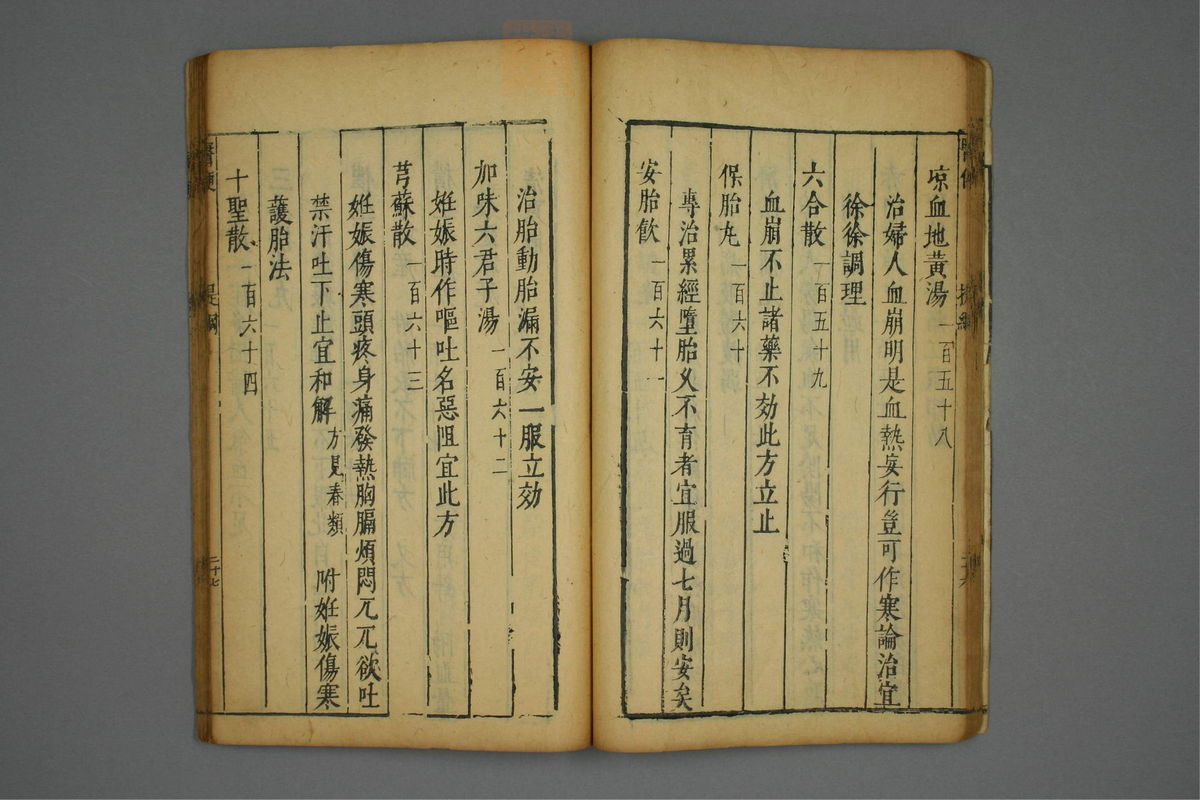 涼血地黃湯 一百五十八
治婦人血崩明是血熱妄行豈可作寒論治宜
徐徐調理
六合散 一百五十九
血崩不止諸藥不効此方立止
保胎丸 一百六十
專治累經墮胎久不育者宜服過七月則安矣
安胎飲 一百六十一
治胎動胎漏不安一服立効
加味六君子湯 一百六十二
姙娠時作嘔吐名惡阻宜此方
芎蘇散 一百六十三
姙娠傷寒頭疼身痛發熱胸膈煩悶兀兀欲吐
禁汗吐下止宜和解 方見春類 附姙娠傷寒
護胎法
十聖散 一百六十四
醫便 提綱 二十七